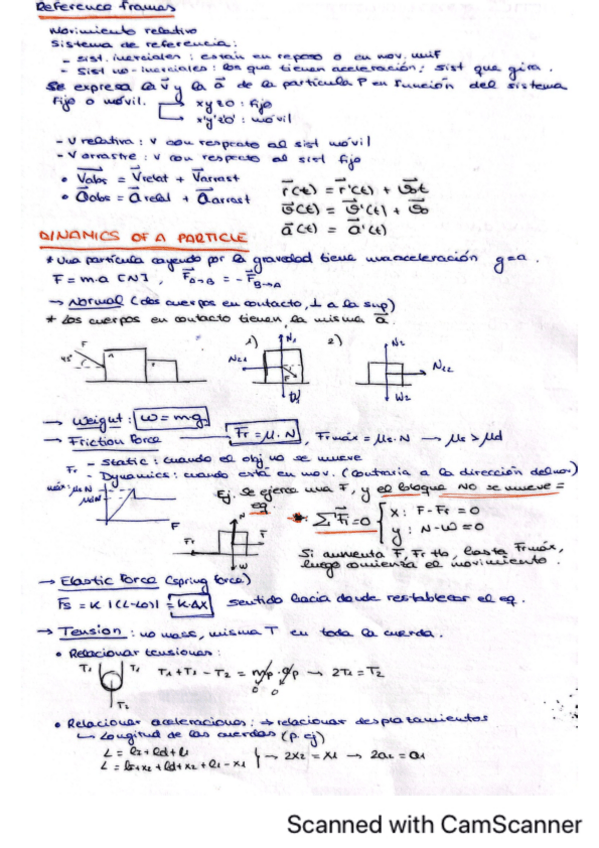 Reference frames
Movimiento relativo
Sistema de referencia:
- sist. inerciales: están en reposo o en mov. unif
- Sist no-inerciales: los que tienen aceleración; sist que gira.
Se expresa la v⃗ y la a⃗ de la partícula P en función del sistema
fijo o móvil.
xyz0 : fijo
x'y'z'0' : móvil
- V relativa: v con respecto al sist móvil
- V arrastre: v con respecto al sist fijo
• V⃗abs = V⃗relat + V⃗arrast
• a⃗abs = a⃗relat + a⃗arrast
r⃗(t) = r⃗'(t) + v⃗0t
v⃗(t) = v⃗'(t) + v⃗0
a⃗(t) = a⃗'(t)
DINAMICS OF A PARTICLE
* Una partícula cayendo por la gravedad tiene una aceleración g=a.
F = m·a [N], F⃗A→B = -F⃗B→A
→ Normal (dos cuerpos en contacto, ⊥ a la sup)
* Los cuerpos en contacto tienen la misma a⃗.
F
45°
A
1)
N1
N21
F
2)
N2
N12
W2
→ Weight: W = mg
→ Friction Force Fr = μ·N, Frmáx = μs·N → μs > μd
- Static: cuando el obj no se mueve
- Dynamics: cuando está en mov. (contraria a la dirección del mov)
Fr
F
Ej. Se ejerce una F⃗, y el bloque NO se mueve =
eq.
*: ΣF⃗i=0 { x: F-Fr = 0
y: N-W = 0
Fr
N
W
Si aumenta F⃗, Fr tb, hasta Frmáx,
luego comienza el movimiento.
→ Elastic Force (spring force)
Fs = K |(L-L0)| = K·Δx sentido hacia donde restablecer el eq.
→ Tension: no mass, misma T en toda la cuerda.
• Relacionar tensiones:
T1 T1
T2
T1+T1-T2 = mp·ap → 2T1 = T2
0 0
• Relacionar aceleraciones: → relacionar desplazamientos
↳ Longitud de las cuerdas (p. ej)
L = l2+ld+l1
L = l2+x2+ld+x2+l1-x1 } → 2x2 = x1 → 2a2 = a1
Scanned with CamScanner